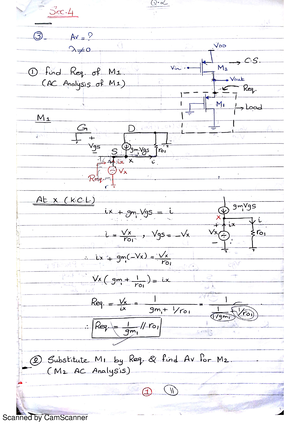 Sec. 4
③. Av = ?
λ ≠ 0
VDD
Vin
M2
C.S.
Vout
Req
M1
Load
① Find Req. of M1
(AC Analysis of M1)
M1
G D
+
Vgs
-
S
gmVgs
ro1
x
i
ix
Req
Vx
At X (K.C.L)
ix + gm Vgs = i
i = Vx/ro1 , Vgs = -Vx
∴ ix + gm(-Vx) = Vx/ro1
Vx (gm + 1/ro1) = ix
Req = Vx/ix = 1/(gm + 1/ro1) = 1/(1/(1/gm) + 1/ro1)
∴ Req = 1/gm1 // ro1
gmVgs
x
ix
i
+
Vx
-
ro1
② Substitute M1 by Req & find Av for M2.
(M2 AC Analysis)
①
Scanned by CamScanner